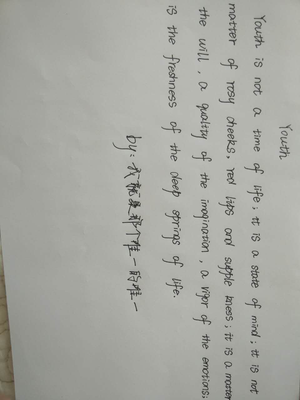 Youth
Youth is not a time of life; it is a state of mind; it is not
matter of rosy cheeks, red lips and supple knees; it is a matter
the will, a quality of the imagination, a vigor of the emotions;
is the freshness of the deep springs of life.
by: 我就是那个唯一的唯一